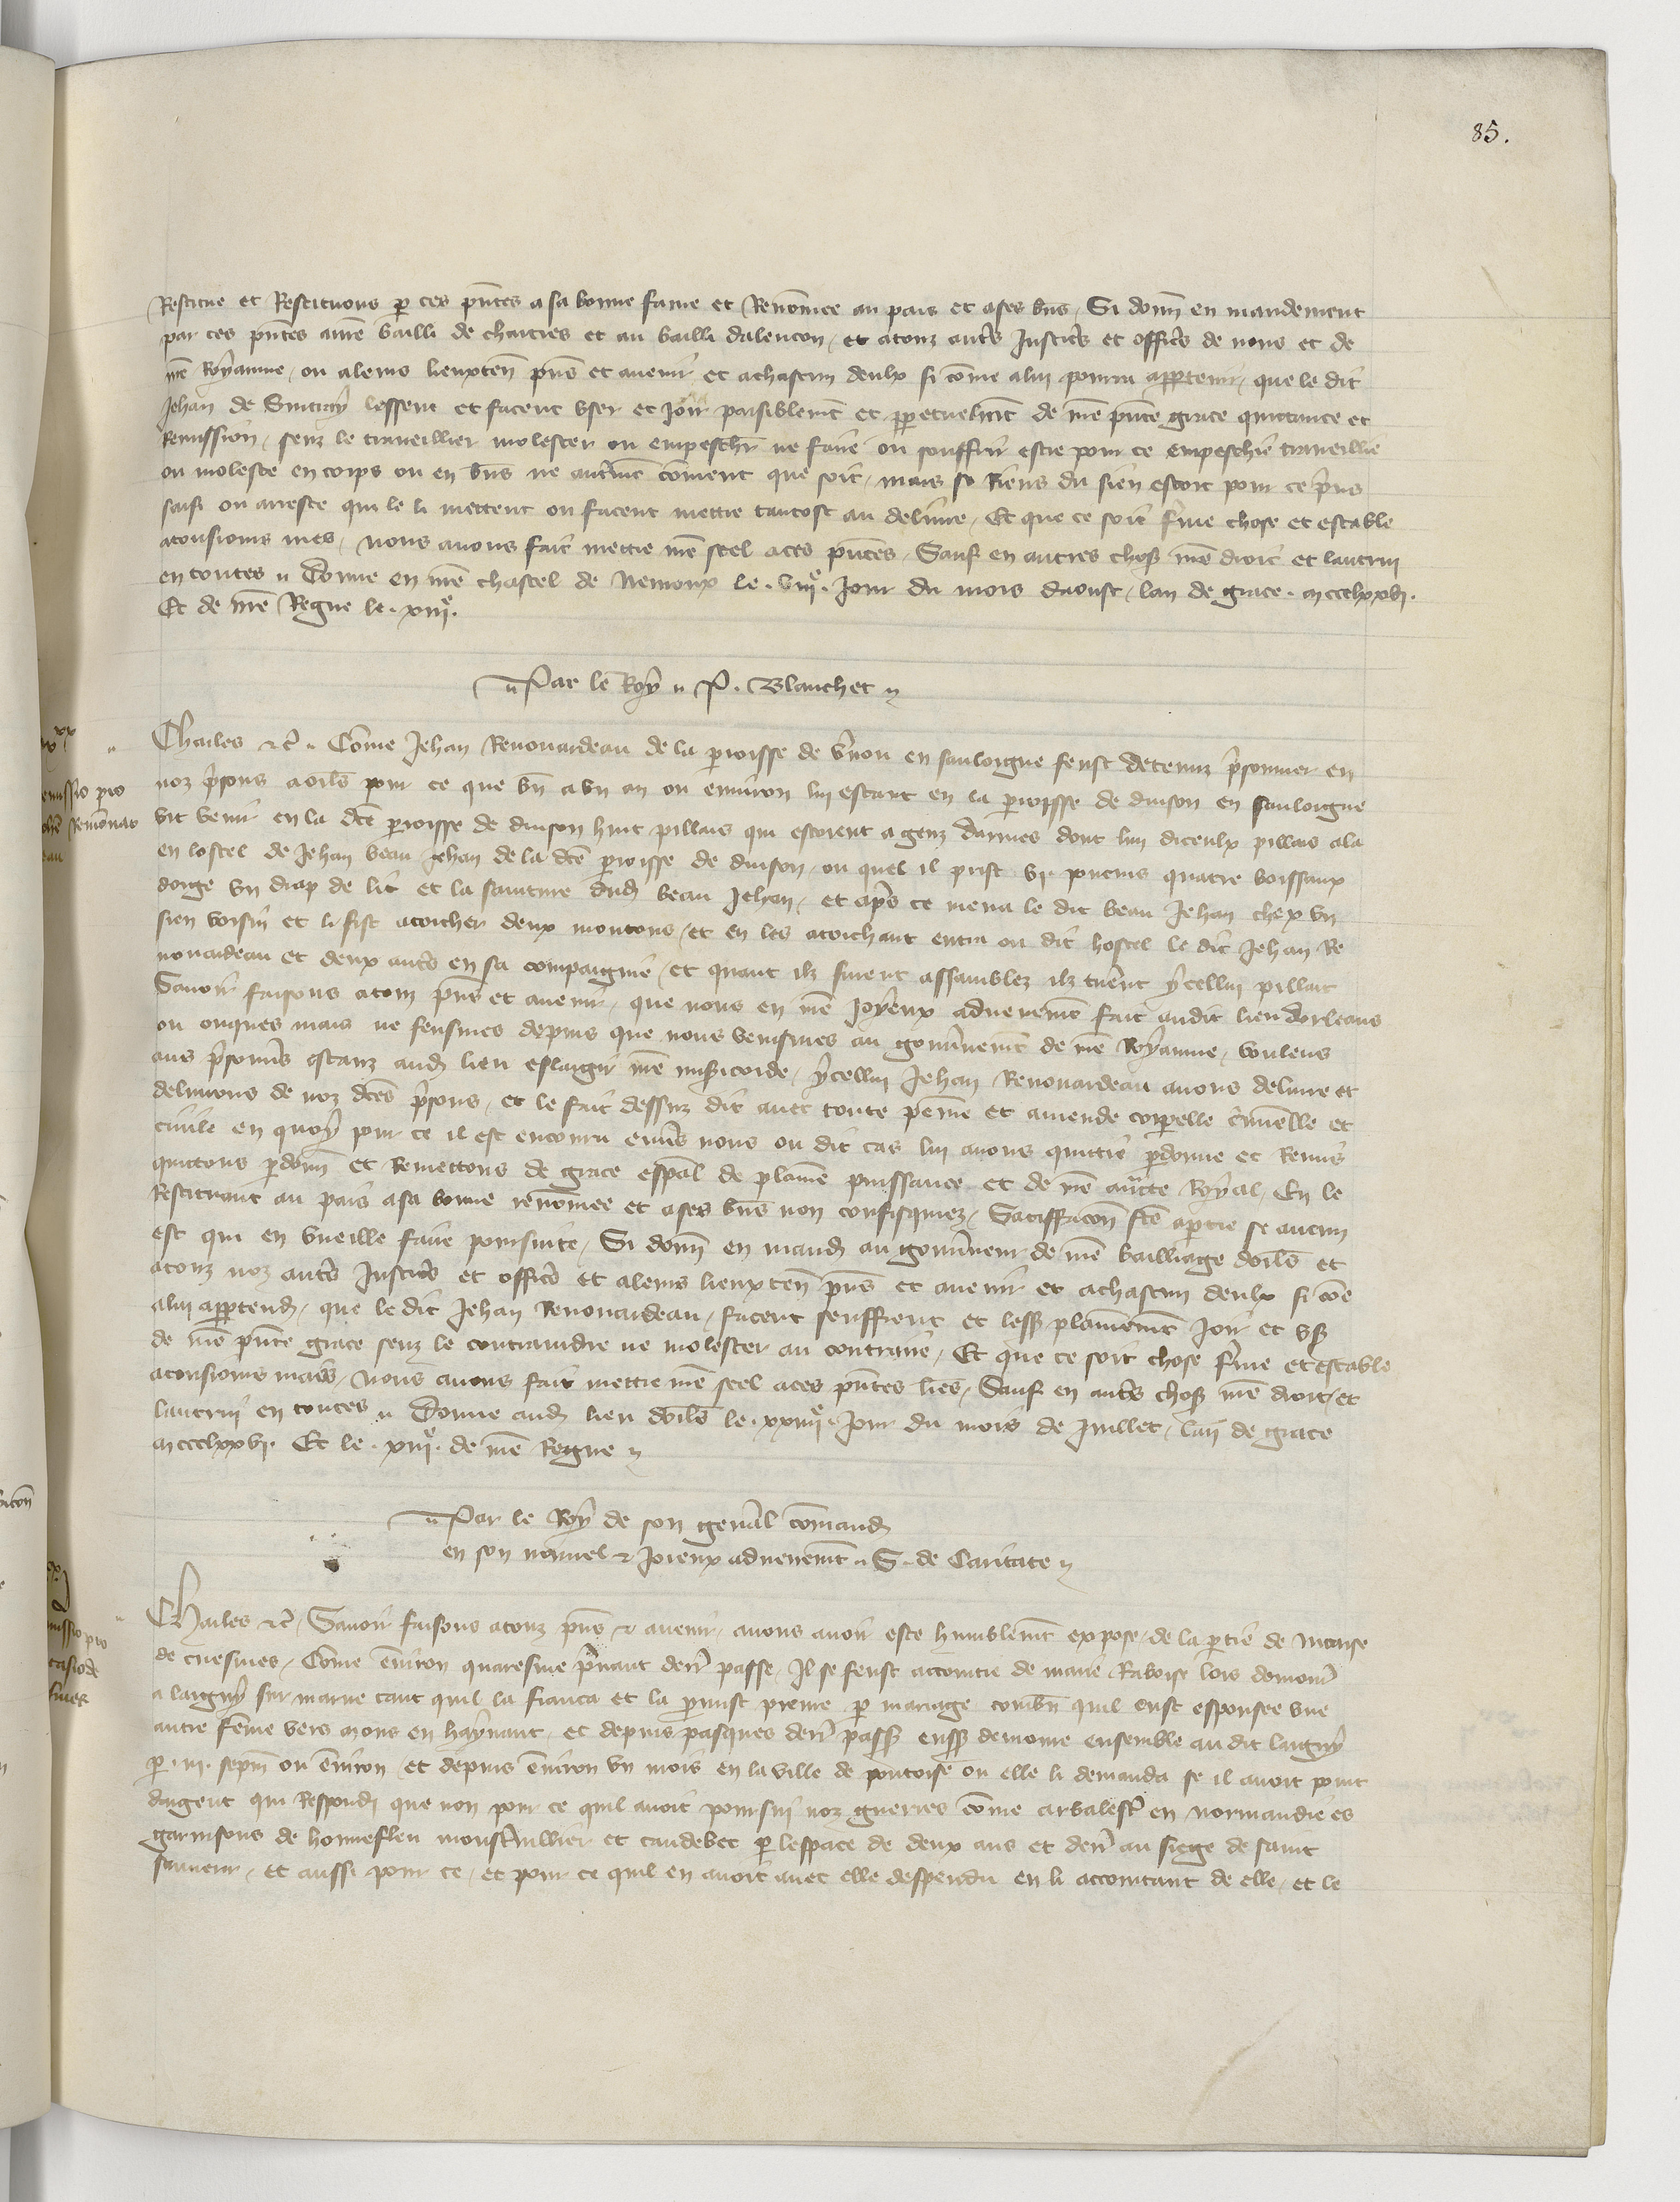 85.
Restitue et Restituons p ces pñtes a sa bonne fame et Renom̃ee au pais et a ses biẽs, Si donñ en mandement
par ces pñtes au bailli de chartres et au bailli dalencon, et a touz autˢ Justicˢ et officˢ de nous et de
nr̃e Royaume, ou a leurs lieuxteñ pñs et auenir et a chascun deulx si cõme a lui pourra appartenir, que le dit
Jehan de lessent et facent vser et Joir paisiblemẽt et ppetuelmẽt de nr̃e pñte grace quittance et
Remission, senz le traueillier molester ou empeschr̃ ne faire ou souffrir estre pour ce empeschie traueillie
ou moleste en corps ou en biẽs ne autremẽt cõment que soit, mais se Riens du sien estoit pour ce pris
saisi ou arreste qui le li mettent ou facent mettre tantost au deliure, Et que ce soit fˢme chose et estable
a tousiours mes, nous auons fait mettre nr̃e seel a ces pñtes, Sauf en autres choses nr̃e droit et lautrui
en toutes Donne en nr̃e chastel de Nemoux le . viiiᵉ. Jour du mois daoust, lan de grace . mccclxxvi.
Et de nr̃e Regne le . xiiiᵉ.
Par le Roy P. Blanchet
Charles etc̃ Cõme Jehan Renouardeau de la proisse de vˢnou en sauloigne feust detenuz prisonnier en
noz prisons a orls̃ pour ce que bñ a vn an ou enuiron lui estant en la proisse de duison en sauloigne
vit venir en la dc̃e proisse de duison huit pillars qui estoient a genz darmes dont lun diceulx pillars ala
en lostel de Jehan beau Jehan de la dc̃e proisse de duison, ou quel il prist vi. quatre boissaux
dorge vn drap de lit et la sainture dud beau Jehan, et apˢs ce mena le dit beau Jehan chex vn
sien voisin et li fist atoicher deux moutons, et en les atoichant entra ou dit hostel le dit Jehan Re
nouardeau et deux autˢ en sa compaignie, et quant ilz furent assamblez ilz tuerẽt ycellui pillart
Sauoir faisons a touz pñs et auenir, que nous en nr̃e Joyeux aduenemẽt fait audit lieu dorleans
ou onques mais ne feusmes depuis que nous venismes au gouũnemẽt de nr̃e Royaume, voulens
aus prisonnˢ estanz aud lieu eslargir nr̃e misˢicorde, ycellui Jehan Renouardeau auons deliure et
deliurons de noz dc̃es prisons, et le fait dessuz dit auec toute peine et amende corporelle crim̃elle et
ciuile en quoy pour ce il est encouru enuˢs nous ou dit cas lui auons quittie pdonne et Remis
quittons pdonñ et Remettons de grace espãl de plaine puissance et de nr̃e auctte Royal, En le
Restituant au pais a sa bonne renom̃ee et a ses biẽs non confisquiez, Satiffacc̃on fc̃e a ptie se aucun
est qui en vueille faire poursuite, Si donñ en mand au gouũneur de nr̃e bailliage dorls̃ et
a touz noz autˢ Justicˢ et officˢ et a leurs lieuxteñ pñs et auenir et a chascun deulx si cõe
a lui apptend, que le dit Jehan Renouardeau, facent seuffrent et lessent plainemẽt Joir et vser
de nr̃e pñte grace senz le contraindre ne molester au contraire, Et que ce soit chose fˢme et estable
a tousiours mais, nous auons fait mettre nr̃e seel a ces pñtes lr̃es, Sauf en autˢ choses nr̃e droit, et
lautrui en toutes Donne aud lieu dorls̃ le . xxiiiiᵉ. Jour du mois de Juillet, lan de grace
mccclxxvi. Et le . xiiiᵉ. de nr̃e Regne
Par le Roy de son geñal cõmand
en son nouuel et Joieux aduenemẽt S. de Caritate
Charles etc̃, Sauoir faisons a touz pñs et auenir, nous auoir este humblemẽt expose, de la ptie de
de cuesmes, Cõme enuiron quaresme pˢnant derr̃ passe, Il se feust accointie de marie Raboise lors demour̃
a laigny sur marne tant quil la fianca et la pˢmist prenre p mariage combñ quil eust espousee vne
autre fẽme vers mons en haynaut, et depuis pasques derr̃ passes eussent demoure ensemble au dit laigny
p . iii. sepm̃ ou enuiron, et depuis enuiron vn mois en la ville de pontoise ou elle li demanda se il auoit point
dargent qui Respondi que non pour ce quil auoit poursui noz guerres cõme arbalestˢ en normandie es
garnisons de honnefleu monstiuillier et caudebec p lespace de deux ans et derr̃ au siege de saint
sauueur, et aussi pour ce, et pour ce quil en auoit auec elle despendu en li accointant de elle, et le